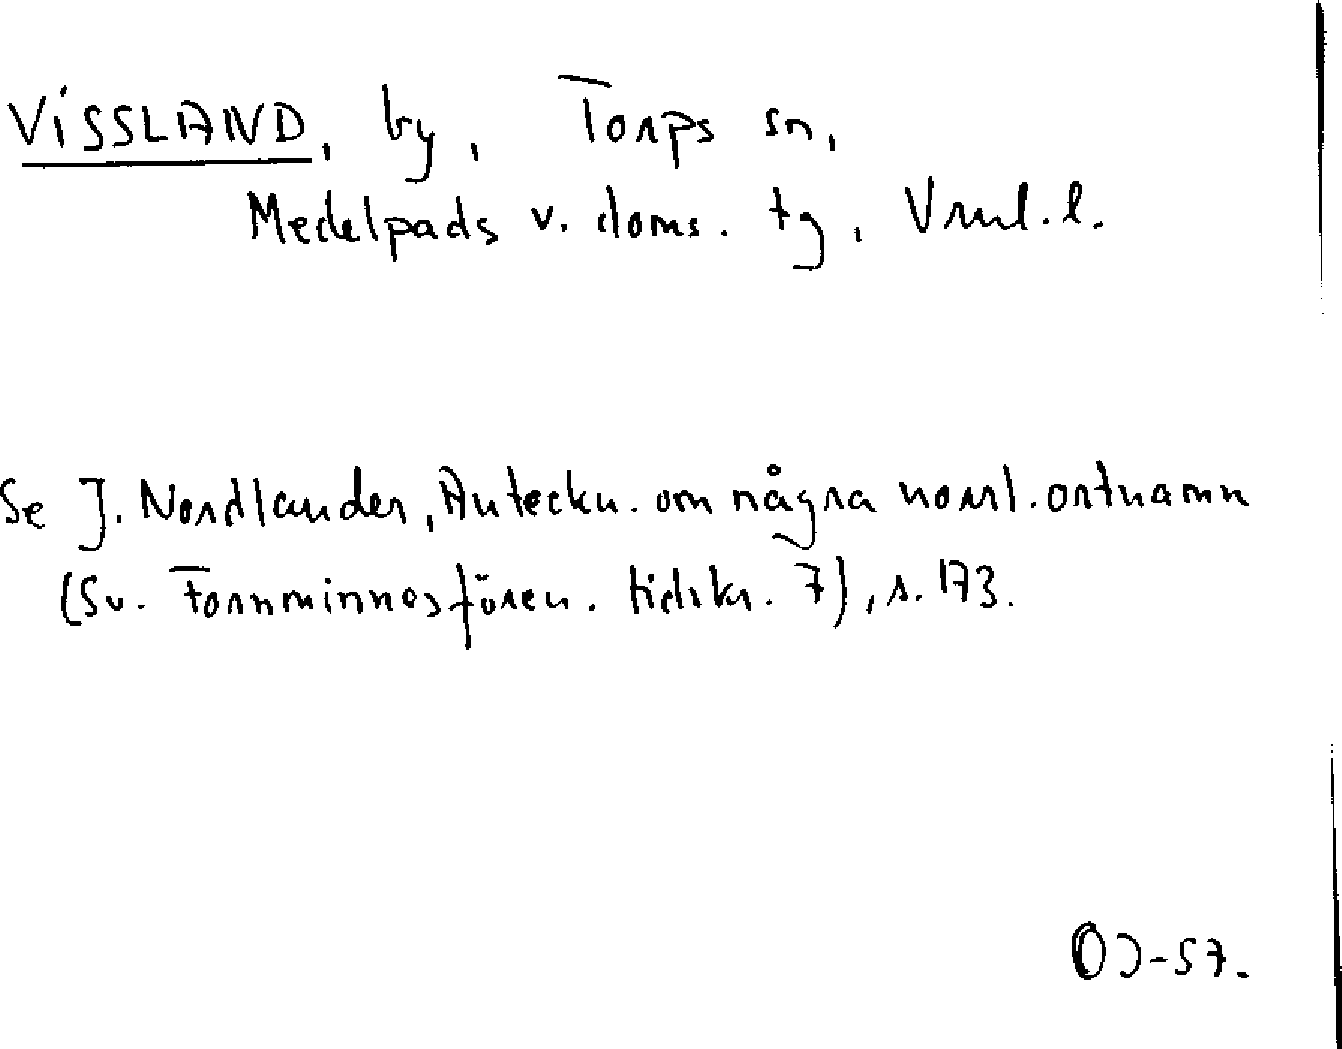 VISSLAND, by, Torps sn,
Medelpads v. doms. tg, Vrnl. l.
Se J. Nordlander, Anteckn. om några norrl. ortnamn
(Sv. Fornminnesfören. tidskr. 7), s. 173.
OJ-57.